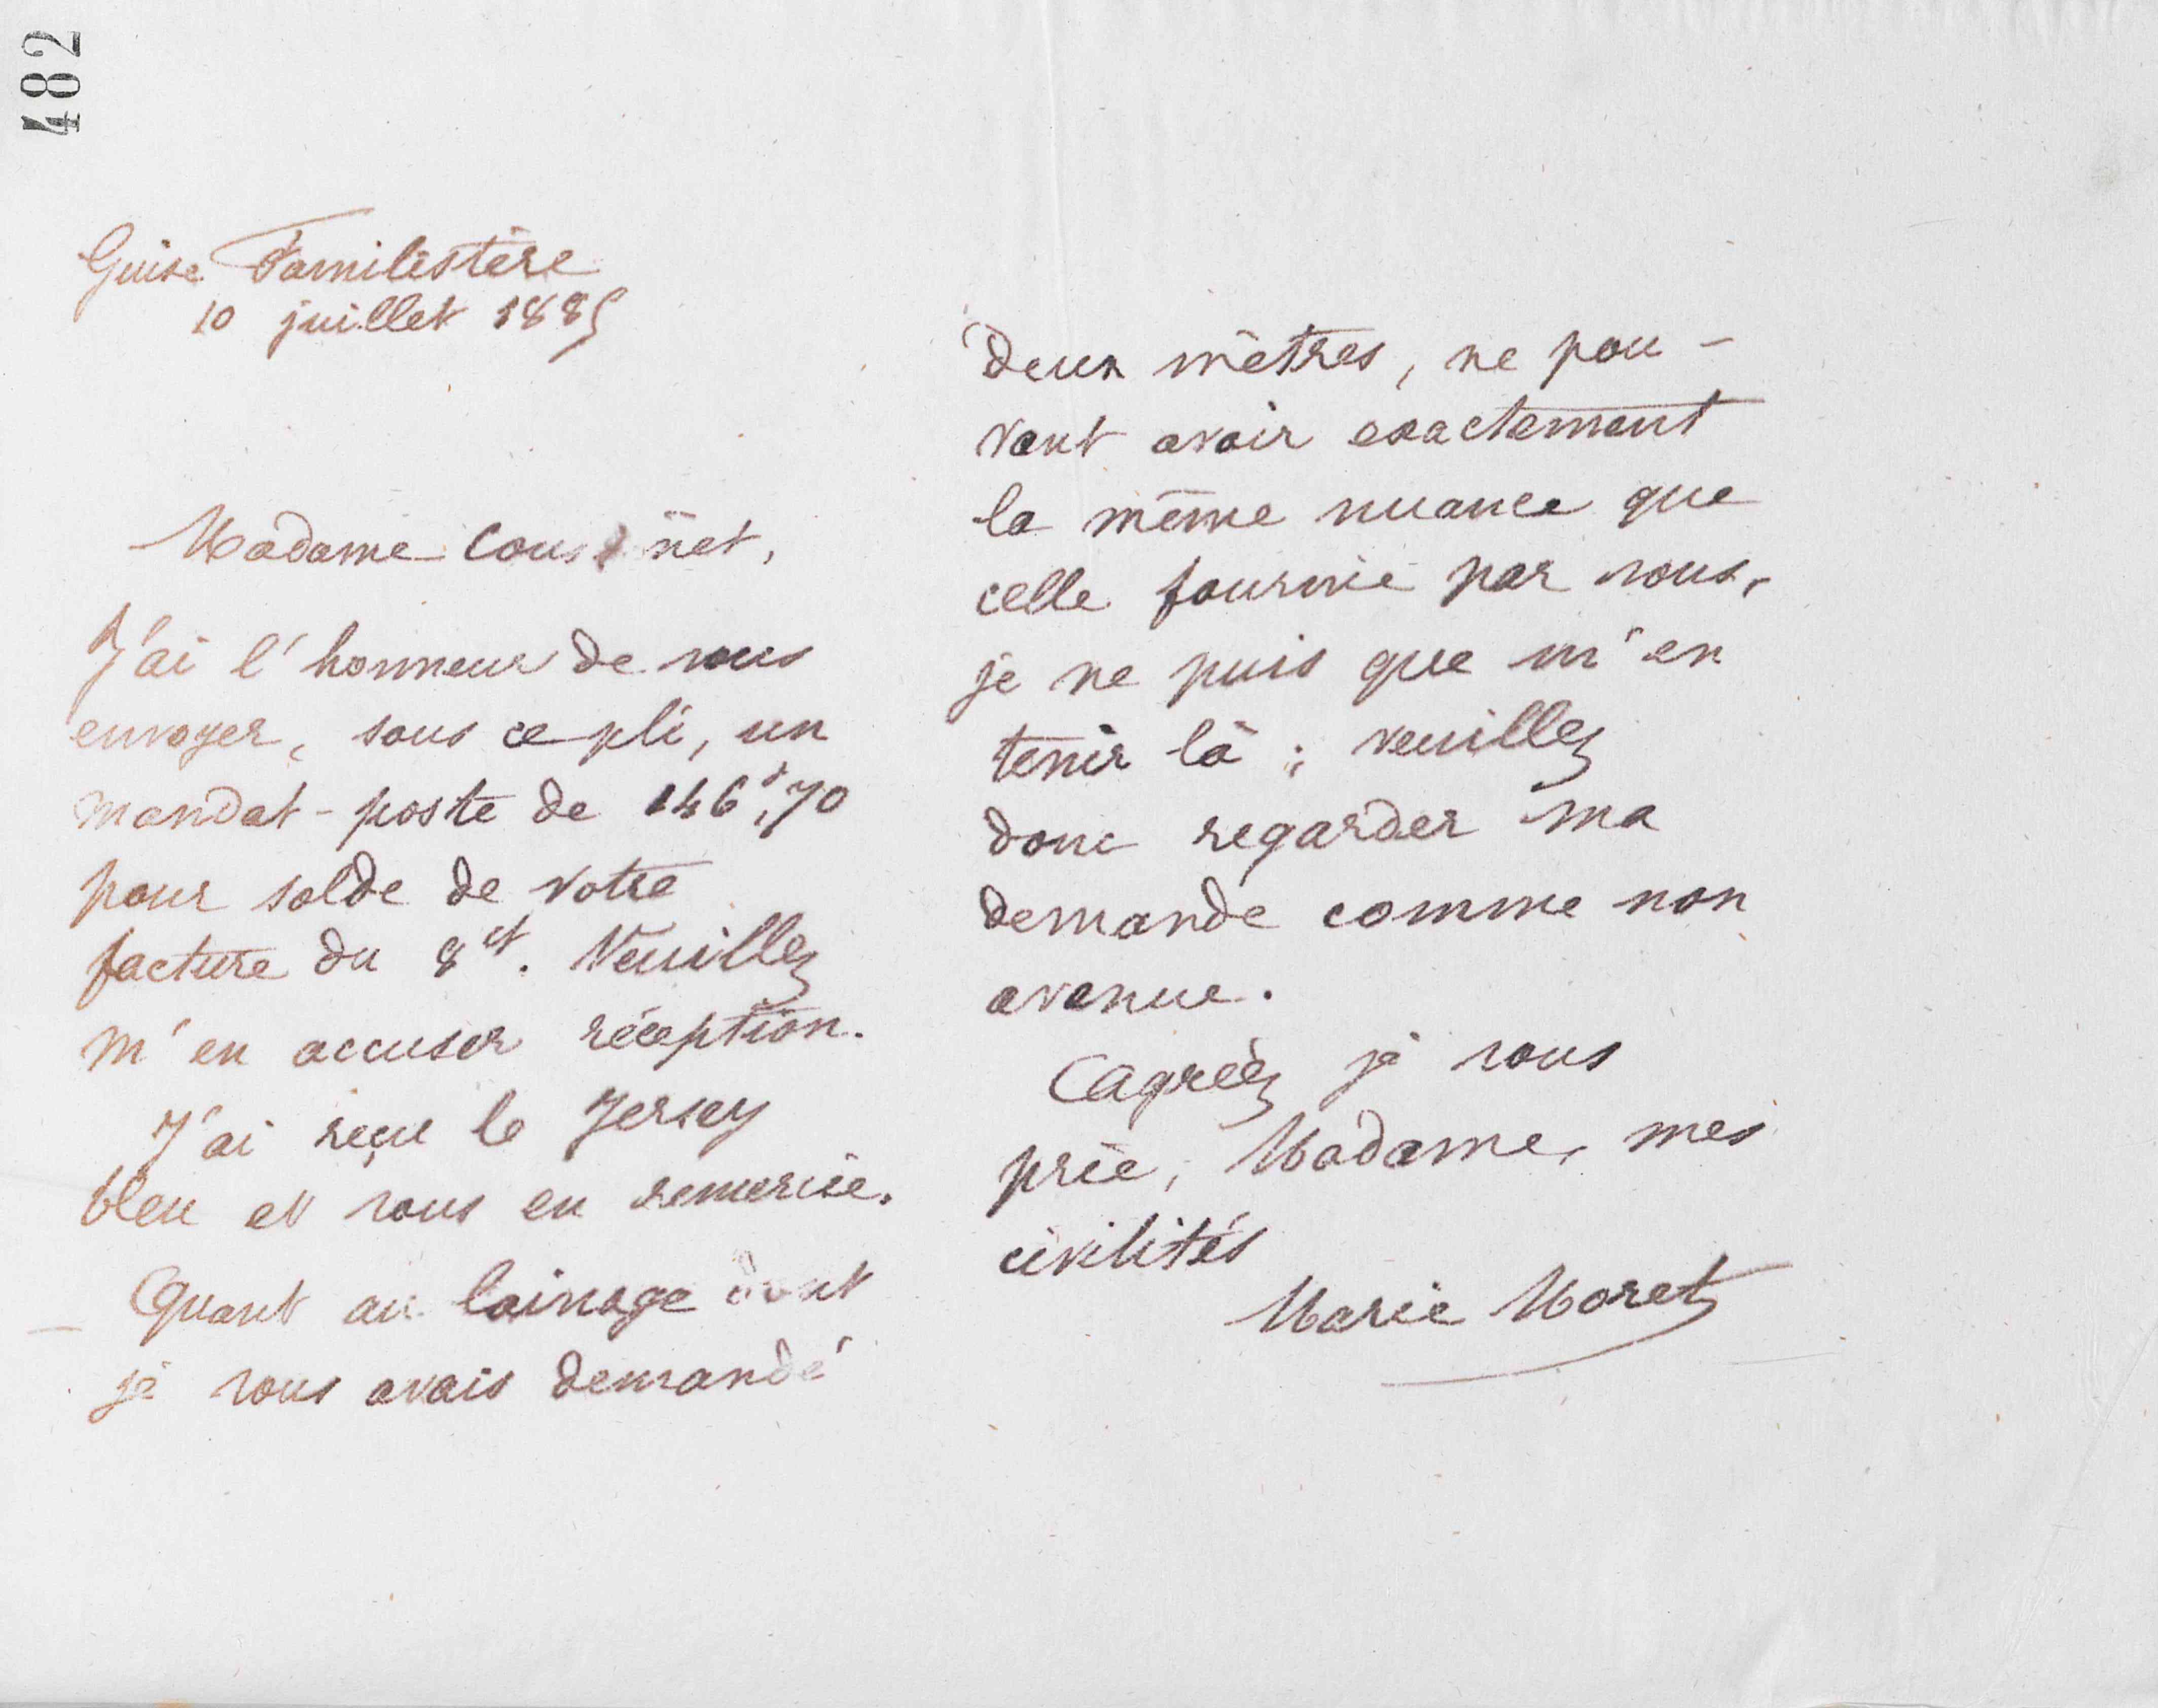 482
Guise Familistère
10 juillet 1885
Madame Cousinet,
J'ai l'honneur de vous
envoyer, sous ce pli, un
mandat-poste de 146f,70
pour solde de votre
facture du 8 ct. Veuillez
m'en accuser réception.
J'ai reçu le Jersey
bleu et vous en remercie.
Quant au lainage dont
je vous avais demandé
deux mètres, ne pou-
vant avoir exactement
la même nuance que
celle fournie par vous,
je ne puis que m'en
tenir là ; veuillez
donc regarder ma
demande comme non
avenue.
Agréez je vous
prie, Madame, mes
civilités
Marie Moret